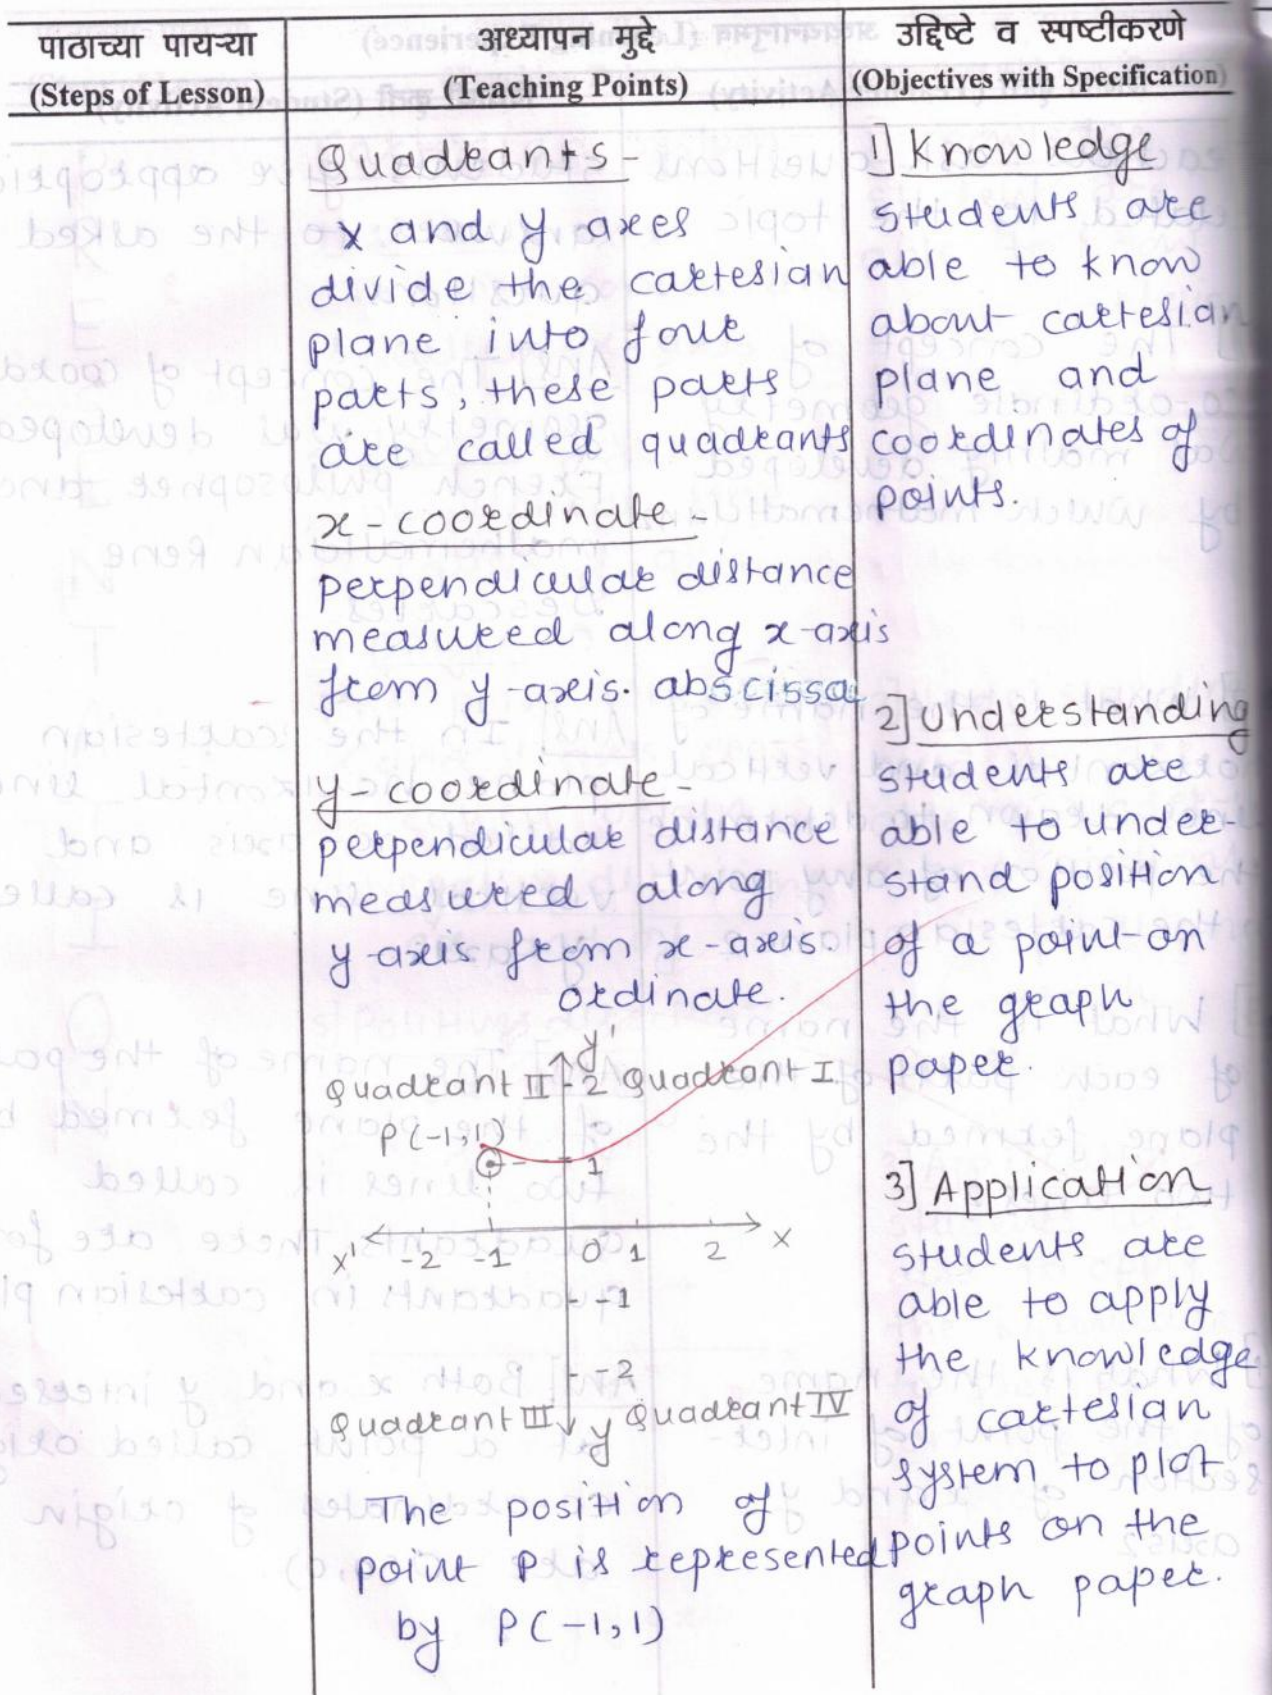 पाठाच्या पायऱ्या
(Steps of Lesson)
अध्यापन मुद्दे
(Teaching Points)
उद्दिष्टे व स्पष्टीकरणे
(Objectives with Specification)
Quadrants -
x and y axes
divide the cartesian
plane into four
parts, these parts
are called quadrants
x-coordinate -
perpendicular distance
measured along x-axis
from y-axis. abscissa
y-coordinate -
perpendicular distance
measured along
y-axis from x-axis.
ordinate.
y'
Quadrant II 2 Quadrant I
P(-1,1)
1
x' -2 -1 0 1 2 x
-1
-2
Quadrant III y Quadrant IV
The position of
point P is represented
by P(-1,1)
1] Knowledge
students are
able to know
about cartesian
plane and
coordinates of
points.
2] Understanding
students are
able to under-
stand position
of a point on
the graph
paper.
3] Application
students are
able to apply
the knowledge
of cartesian
system to plot
points on the
graph paper.